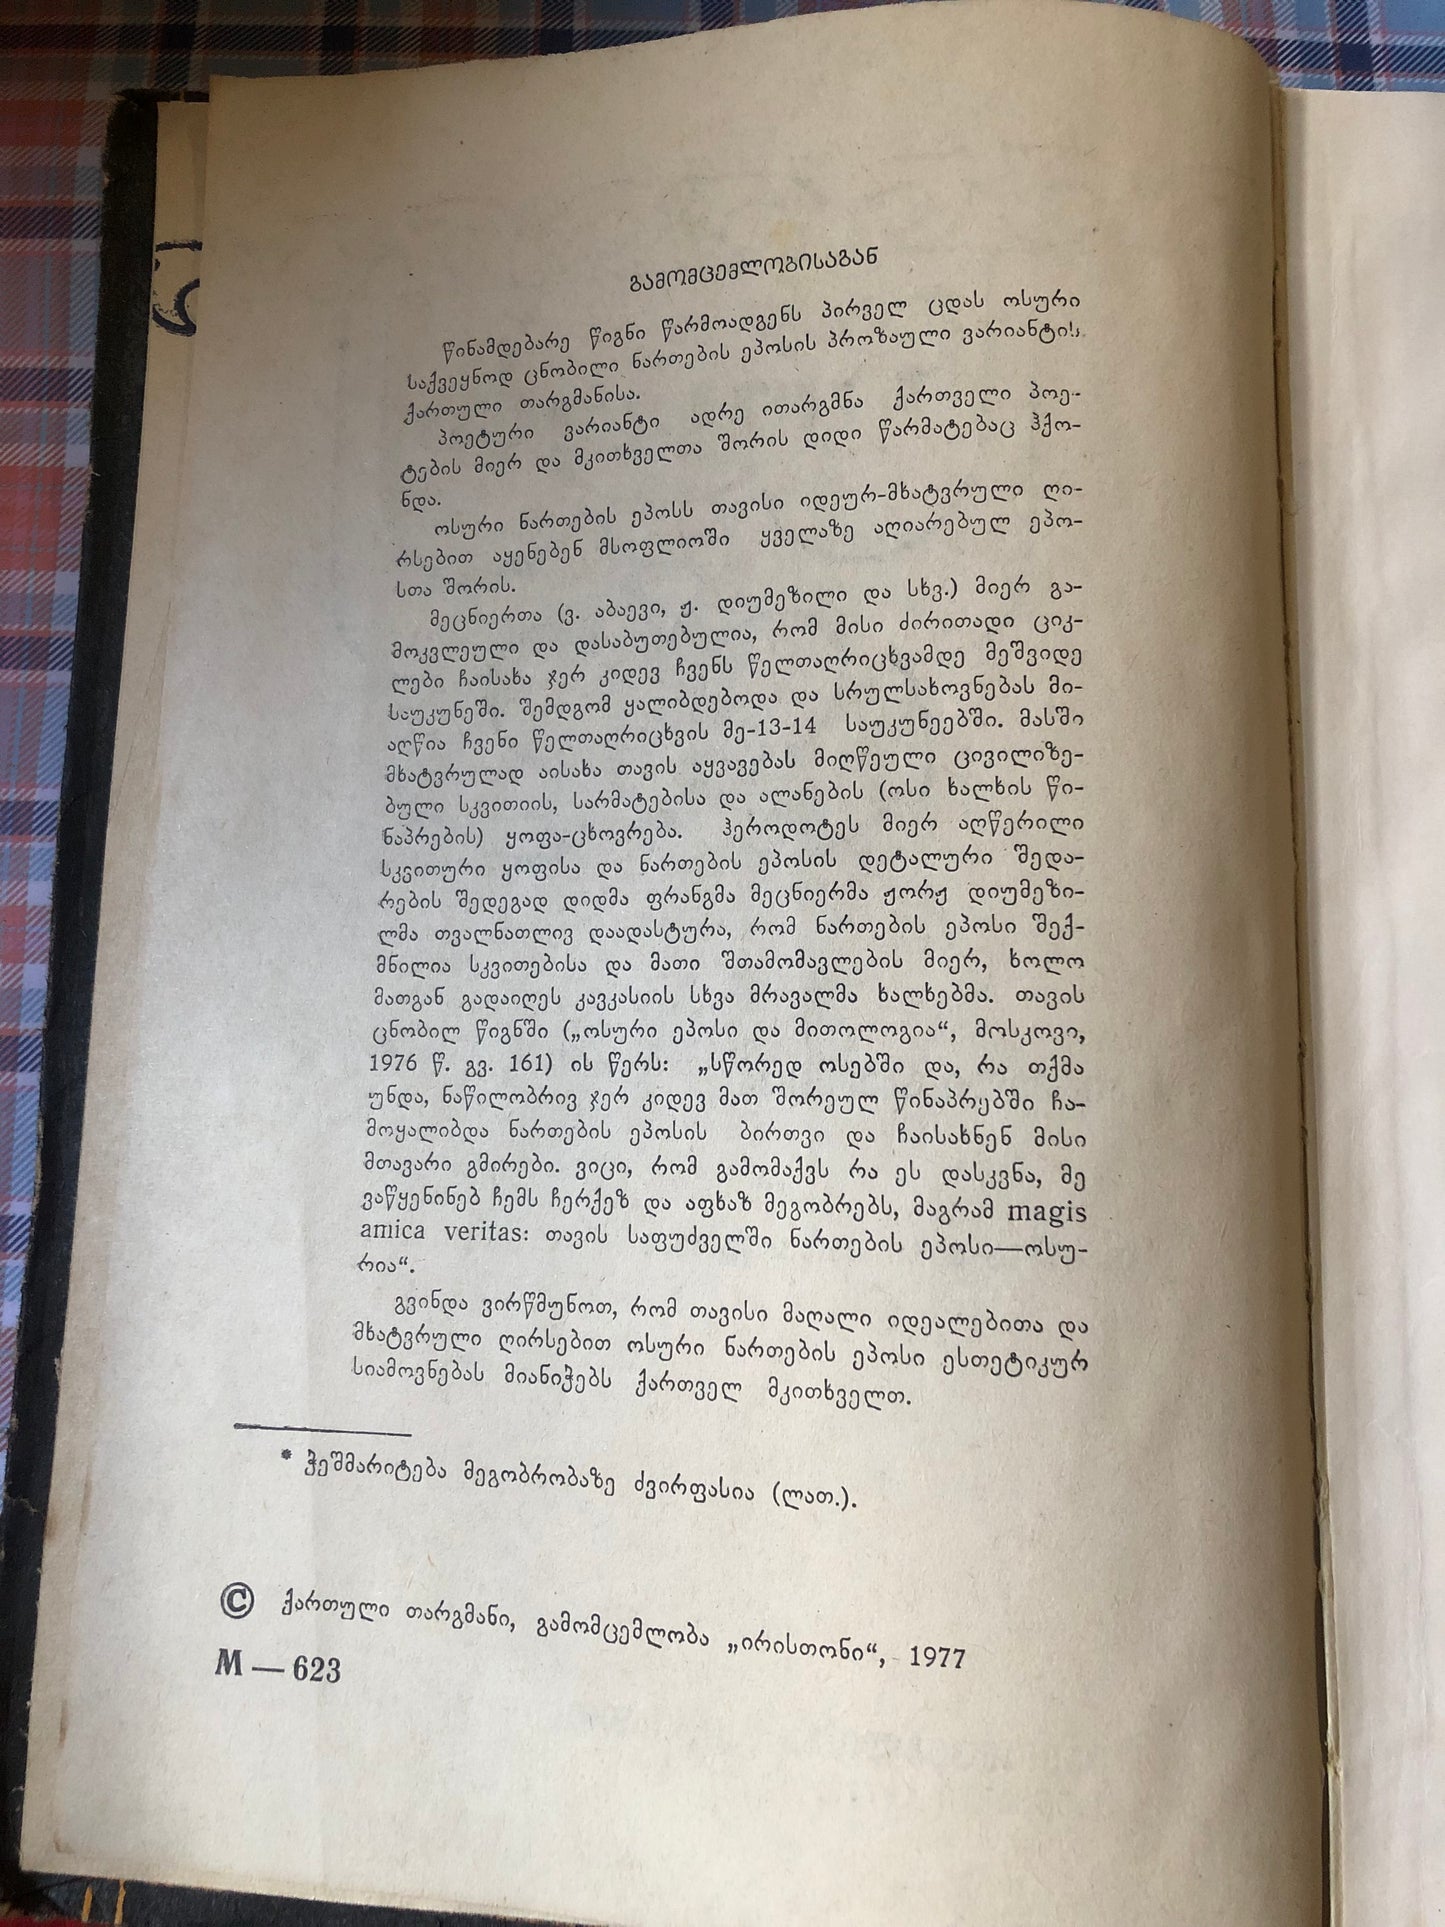 გამომცემლობისაგან
წინამდებარე წიგნი წარმოადგენს პირველ ცდას ოსური
საქვეყნოდ ცნობილი ნართების ეპოსის პროზაული ვარიანტის
ქართული თარგმანისა.
პოეტური ვარიანტი ადრე ითარგმნა ქართველი პოე-
ტების მიერ და მკითხველთა შორის დიდი წარმატებაც ჰქო-
ნდა.
ოსური ნართების ეპოსს თავისი იდეურ-მხატვრული ღი-
რსებით აყენებენ მსოფლიოში ყველაზე აღიარებულ ეპო-
სთა შორის.
მეცნიერთა (ვ. აბაევი, ჟ. დიუმეზილი და სხვ.) მიერ გა-
მოკვლეული და დასაბუთებულია, რომ მისი ძირითადი ციკ-
ლები ჩაისახა ჯერ კიდევ ჩვენს წელთაღრიცხვამდე მეშვიდე
საუკუნეში. შემდგომ ყალიბდებოდა და სრულსახოვნებას მი-
აღწია ჩვენი წელთაღრიცხვის მე-13-14 საუკუნეებში. მასში
მხატვრულად აისახა თავის აყვავებას მიღწეული ცივილიზე-
ბული სკვითიის, სარმატებისა და ალანების (ოსი ხალხის წი-
ნაპრების) ყოფა-ცხოვრება. ჰეროდოტეს მიერ აღწერილი
სკვითური ყოფისა და ნართების ეპოსის დეტალური შედა-
რების შედეგად დიდმა ფრანგმა მეცნიერმა ჟორჟ დიუმეზი-
ლმა თვალნათლივ დაადასტურა, რომ ნართების ეპოსი შექ-
მნილია სკვითებისა და მათი შთამომავლების მიერ, ხოლო
მათგან გადაიღეს კავკასიის სხვა მრავალმა ხალხებმა. თავის
ცნობილ წიგნში („ოსური ეპოსი და მითოლოგია“, მოსკოვი,
1976 წ. გვ. 161) ის წერს: „სწორედ ოსებში და, რა თქმა
უნდა, ნაწილობრივ ჯერ კიდევ მათ შორეულ წინაპრებში ჩა-
მოყალიბდა ნართების ეპოსის ბირთვი და ჩაისახნენ მისი
მთავარი გმირები. ვიცი, რომ გამომაქვს რა ეს დასკვნა, მე
ვაწყენინებ ჩემს ჩერქეზ და აფხაზ მეგობრებს, მაგრამ magis
amica veritas: თავის საფუძველში ნართების ეპოსი—ოსუ-
რია“.
გვინდა ვირწმუნოთ, რომ თავისი მაღალი იდეალებითა და
მხატვრული ღირსებით ოსური ნართების ეპოსი ესთეტიკურ
სიამოვნებას მიანიჭებს ქართველ მკითხველთ.
* ჭეშმარიტება მეგობრობაზე ძვირფასია (ლათ.).
© ქართული თარგმანი, გამომცემლობა „ირისთონი“, 1977
M — 623